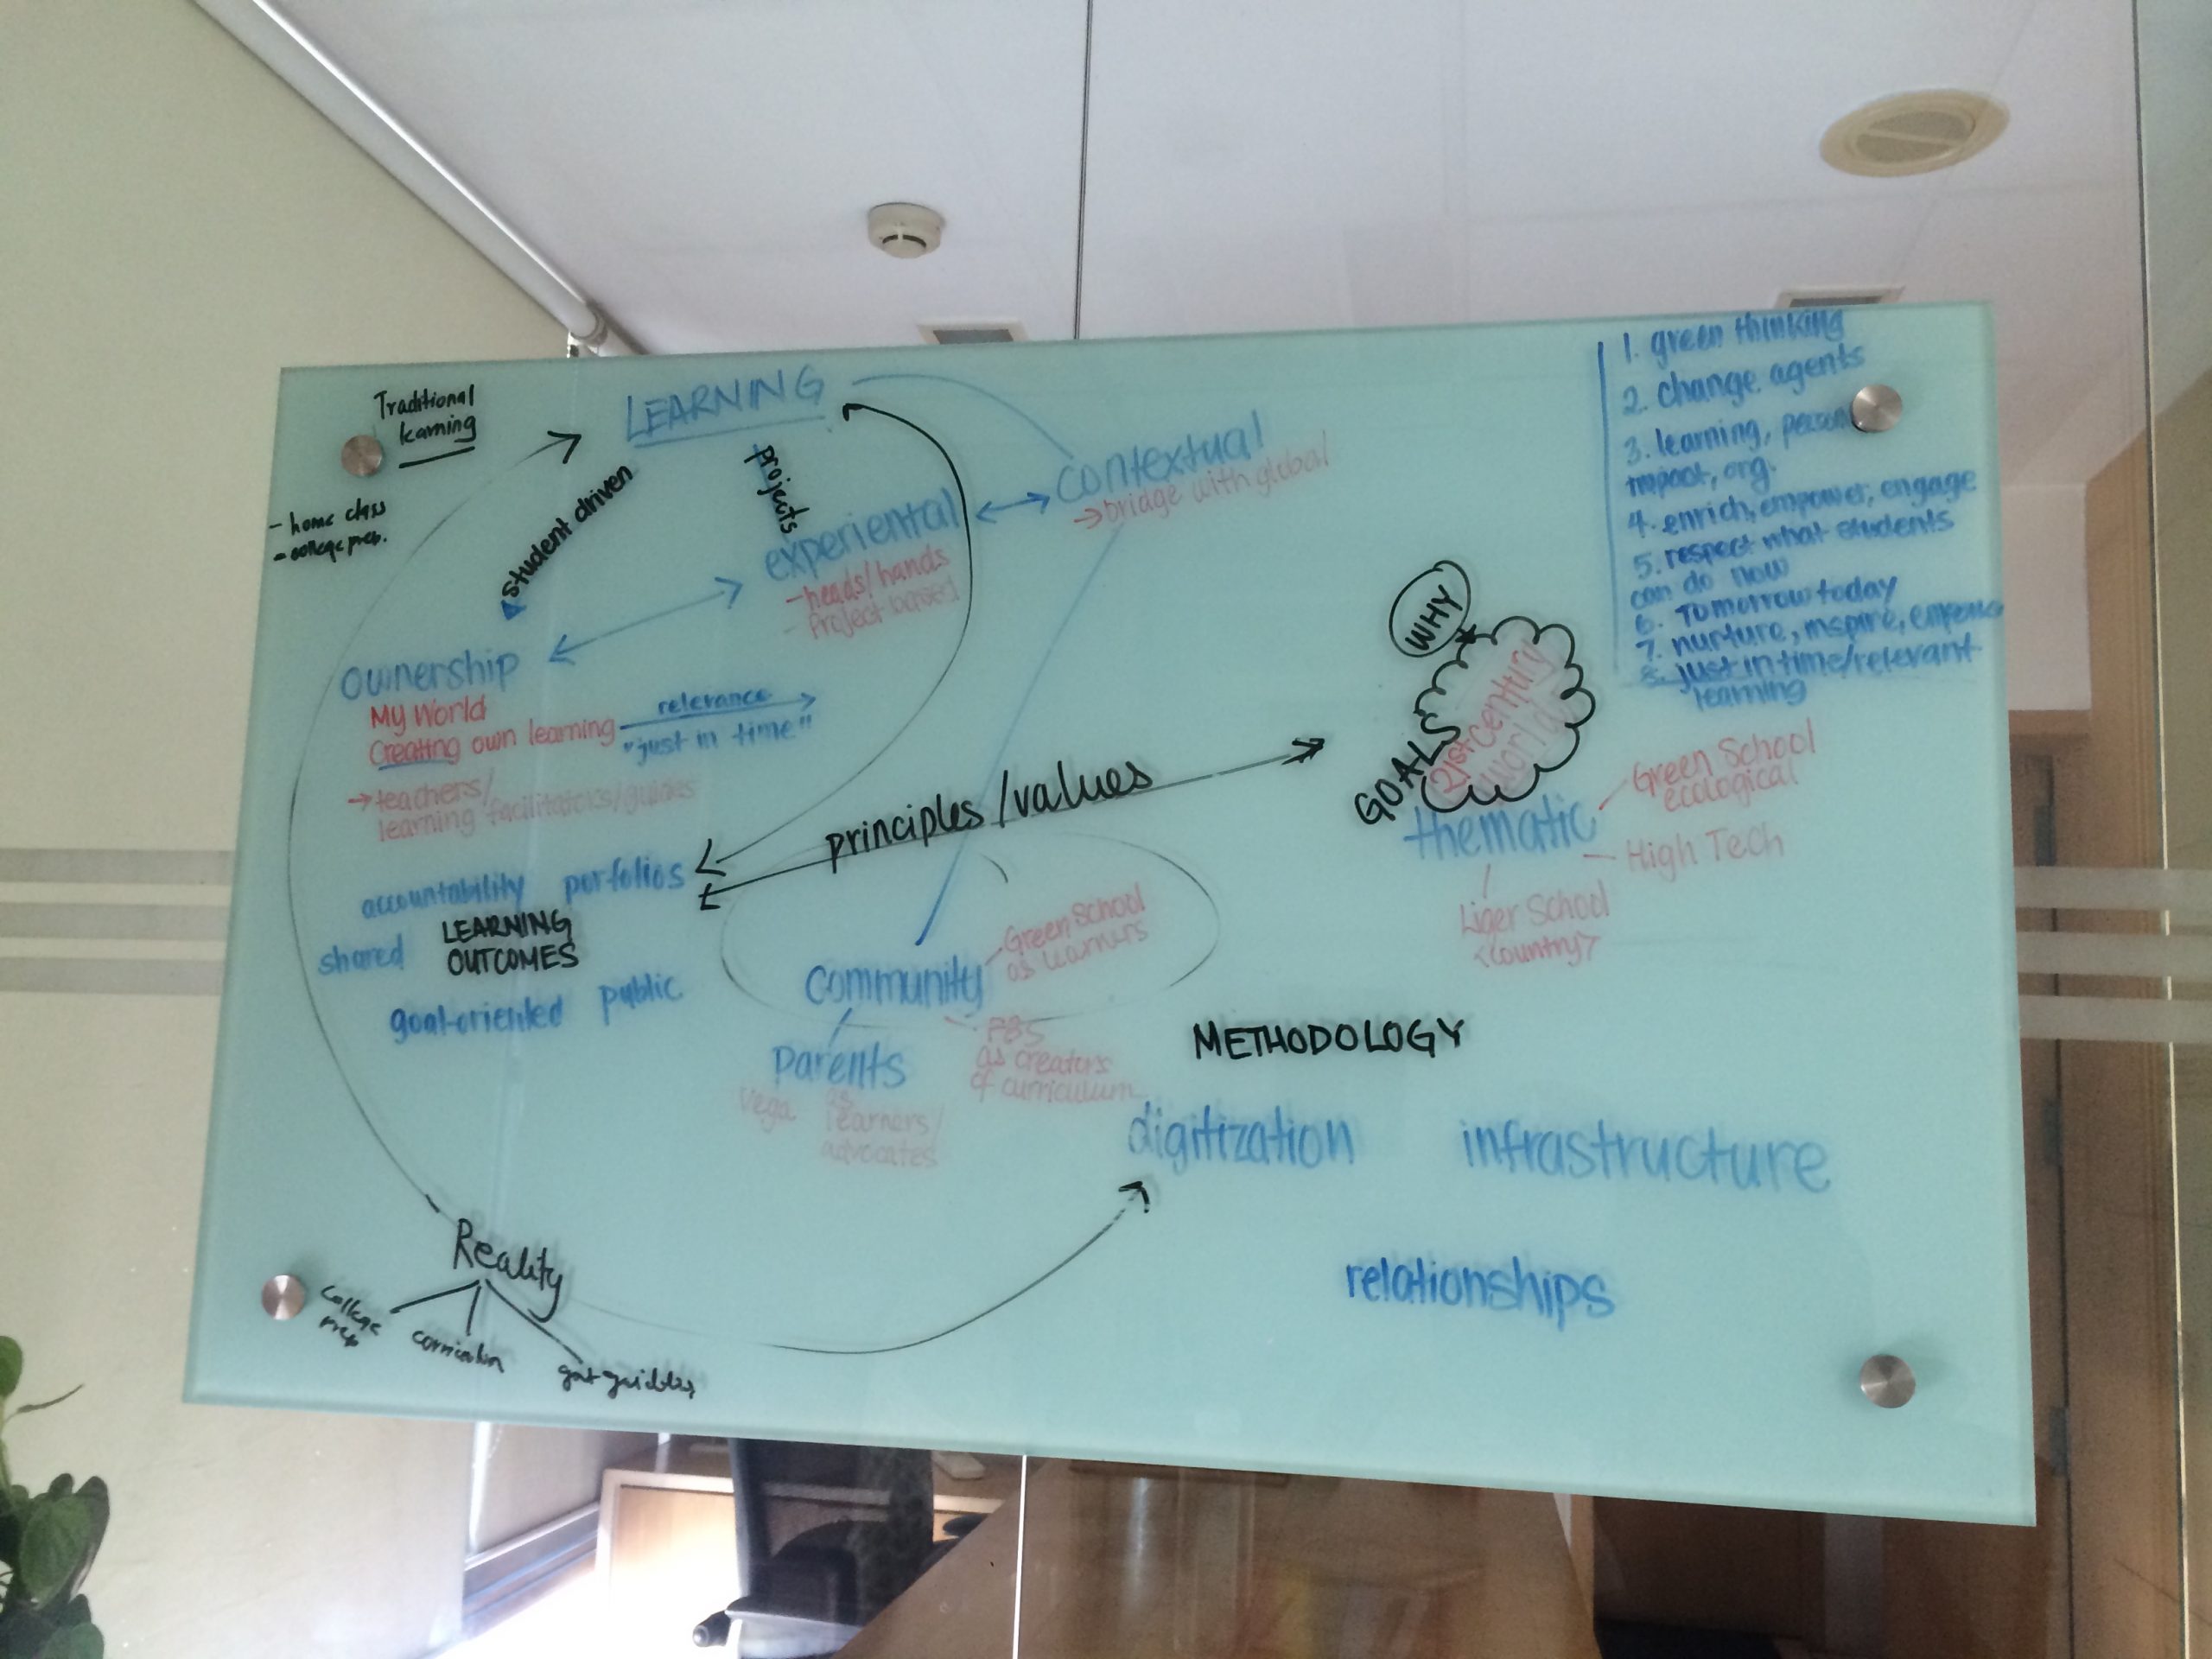 Traditional
learning
- home class
- college prep.
LEARNING
student driven
projects
experiential
- heads/hands
- Project based
contextual
→ bridge with global
ownership
My World
Creating own learning
relevance
"just in time"
→ teachers/
learning facilitators/guides
accountability porfolios
LEARNING
OUTCOMES
shared
goal-oriented public
principles/values
community
Green School
as learners
PBS
as creators
of curriculum
Parents
Vega as
learners/
advocates
WHY
GOALS
21st century
world
thematic
Green School
ecological
High Tech
Liger School
<country>
1. green thinking
2. change agents
3. learning, person
impact, org.
4. enrich, empower, engage
5. respect what students
can do now
6. Tomorrow today
7. nurture, inspire, empower
8. just in time/relevant
learning
METHODOLOGY
digitization infrastructure
relationships
Reality
College
prep